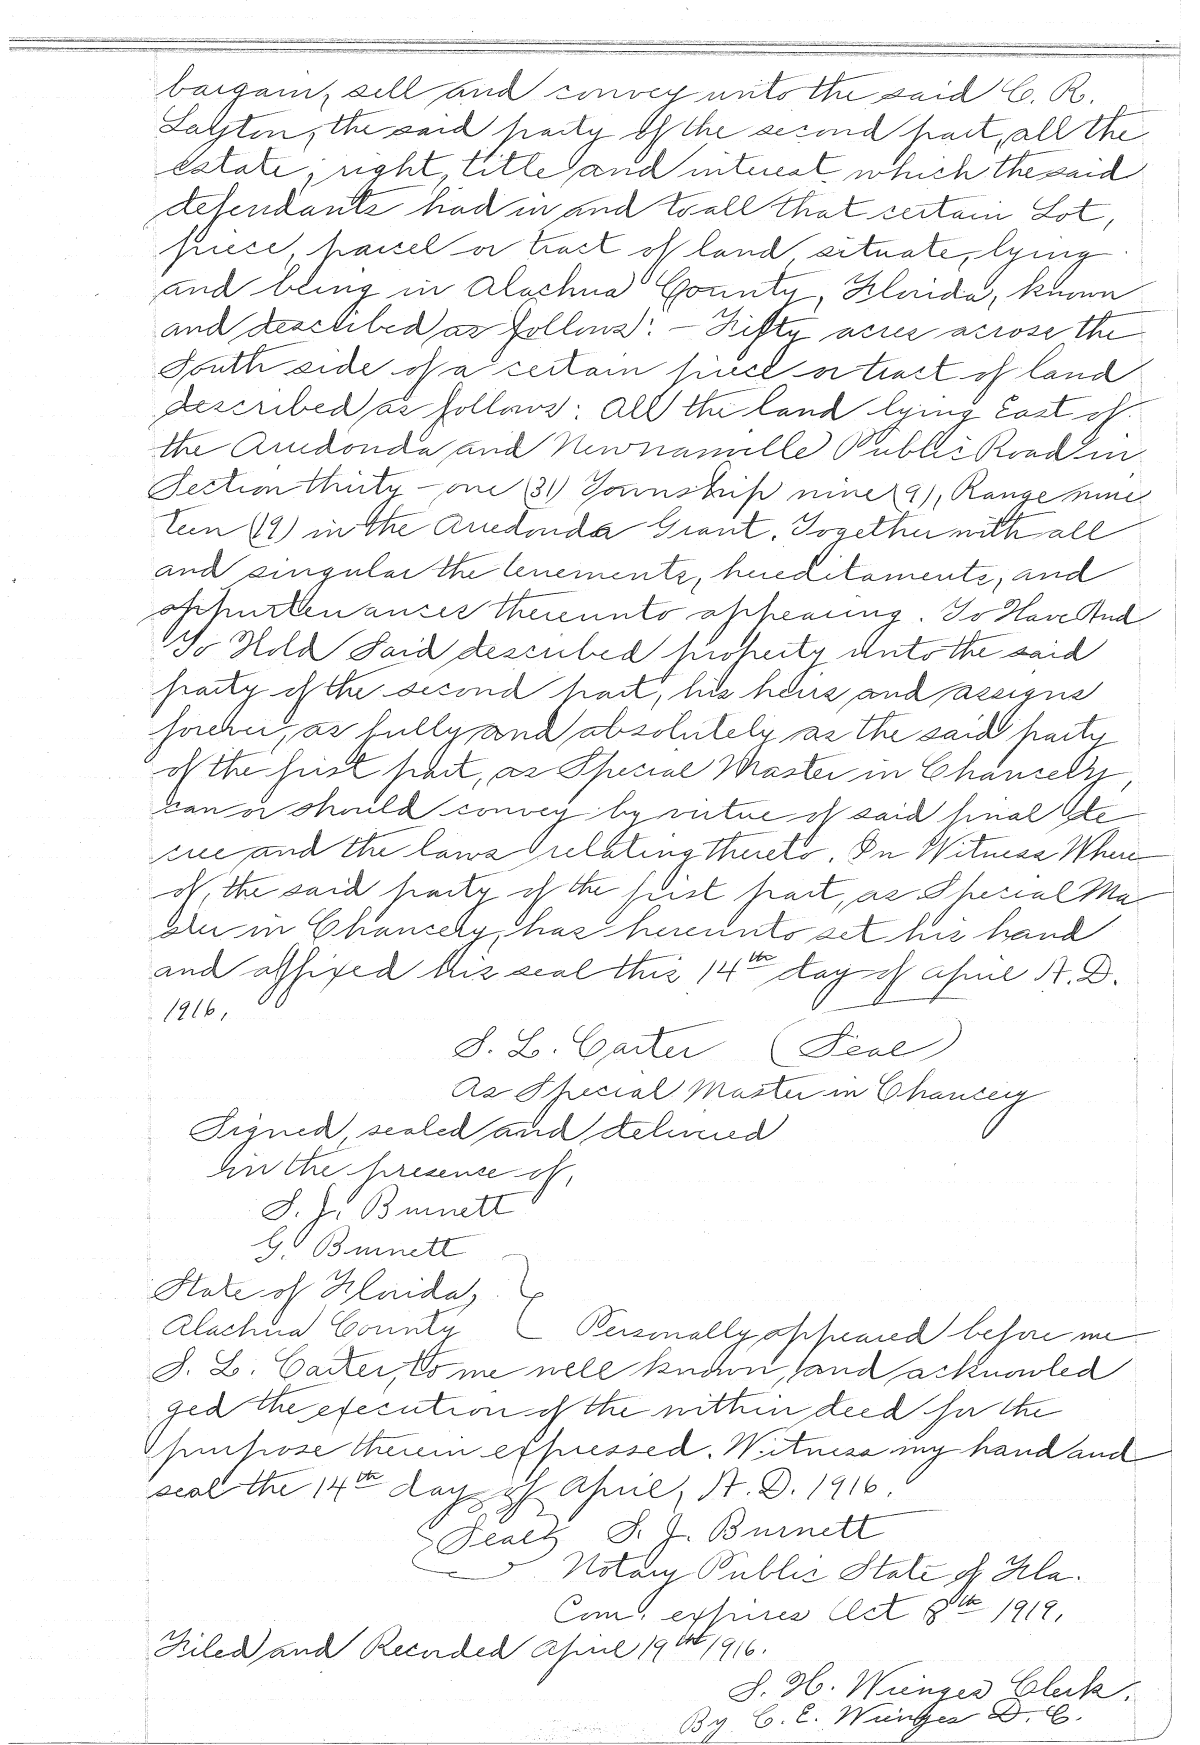 bargain, sell and convey unto the said C. R.
Layton, the said party of the second part, all the
estate, right, title and interest which the said
defendants had in and to all that certain Lot,
piece, parcel or tract of land, situate, lying
and being in Alachua County, Florida, known
and described as follows: - Fifty acres across the
South side of a certain piece or tract of land
described as follows: All the land lying East of
the Arredonda and Newnanville Public Road in
Section thirty-one (31) Township nine (9), Range nine
teen (19) in the Arredonda Grant. Together with all
and singular the tenements, hereditaments, and
appurtenances thereunto appearing. To Have And
To Hold Said described property unto the said
party of the second part, his heirs and assigns
forever, as fully and absolutely as the said party
of the first part, as Special Master in Chancery,
can or should convey by virtue of said final de
cree and the laws relating thereto. In Witness Where
of, the said party of the first part, as Special Ma
ster in Chancery, has hereunto set his hand
and affixed his seal this 14th day of April A.D.
1916.
S. L. Carter (Seal)
As Special Master in Chancery
Signed, sealed and delivered
in the presence of,
S. J. Burnett
G. Burnett
State of Florida,
Alachua County } Personally appeared before me
S. L. Carter, to me well known, and acknowled
ged the execution of the within deed for the
purpose therein expressed. Witness my hand and
seal the 14th day of April, A.D. 1916.
{Seal} S. J. Burnett
Notary Public State of Fla.
Com. expires Oct 8th 1919.
Filed and Recorded April 19th 1916.
S. H. Wienges Clerk.
By C. E. Wienges D. C.